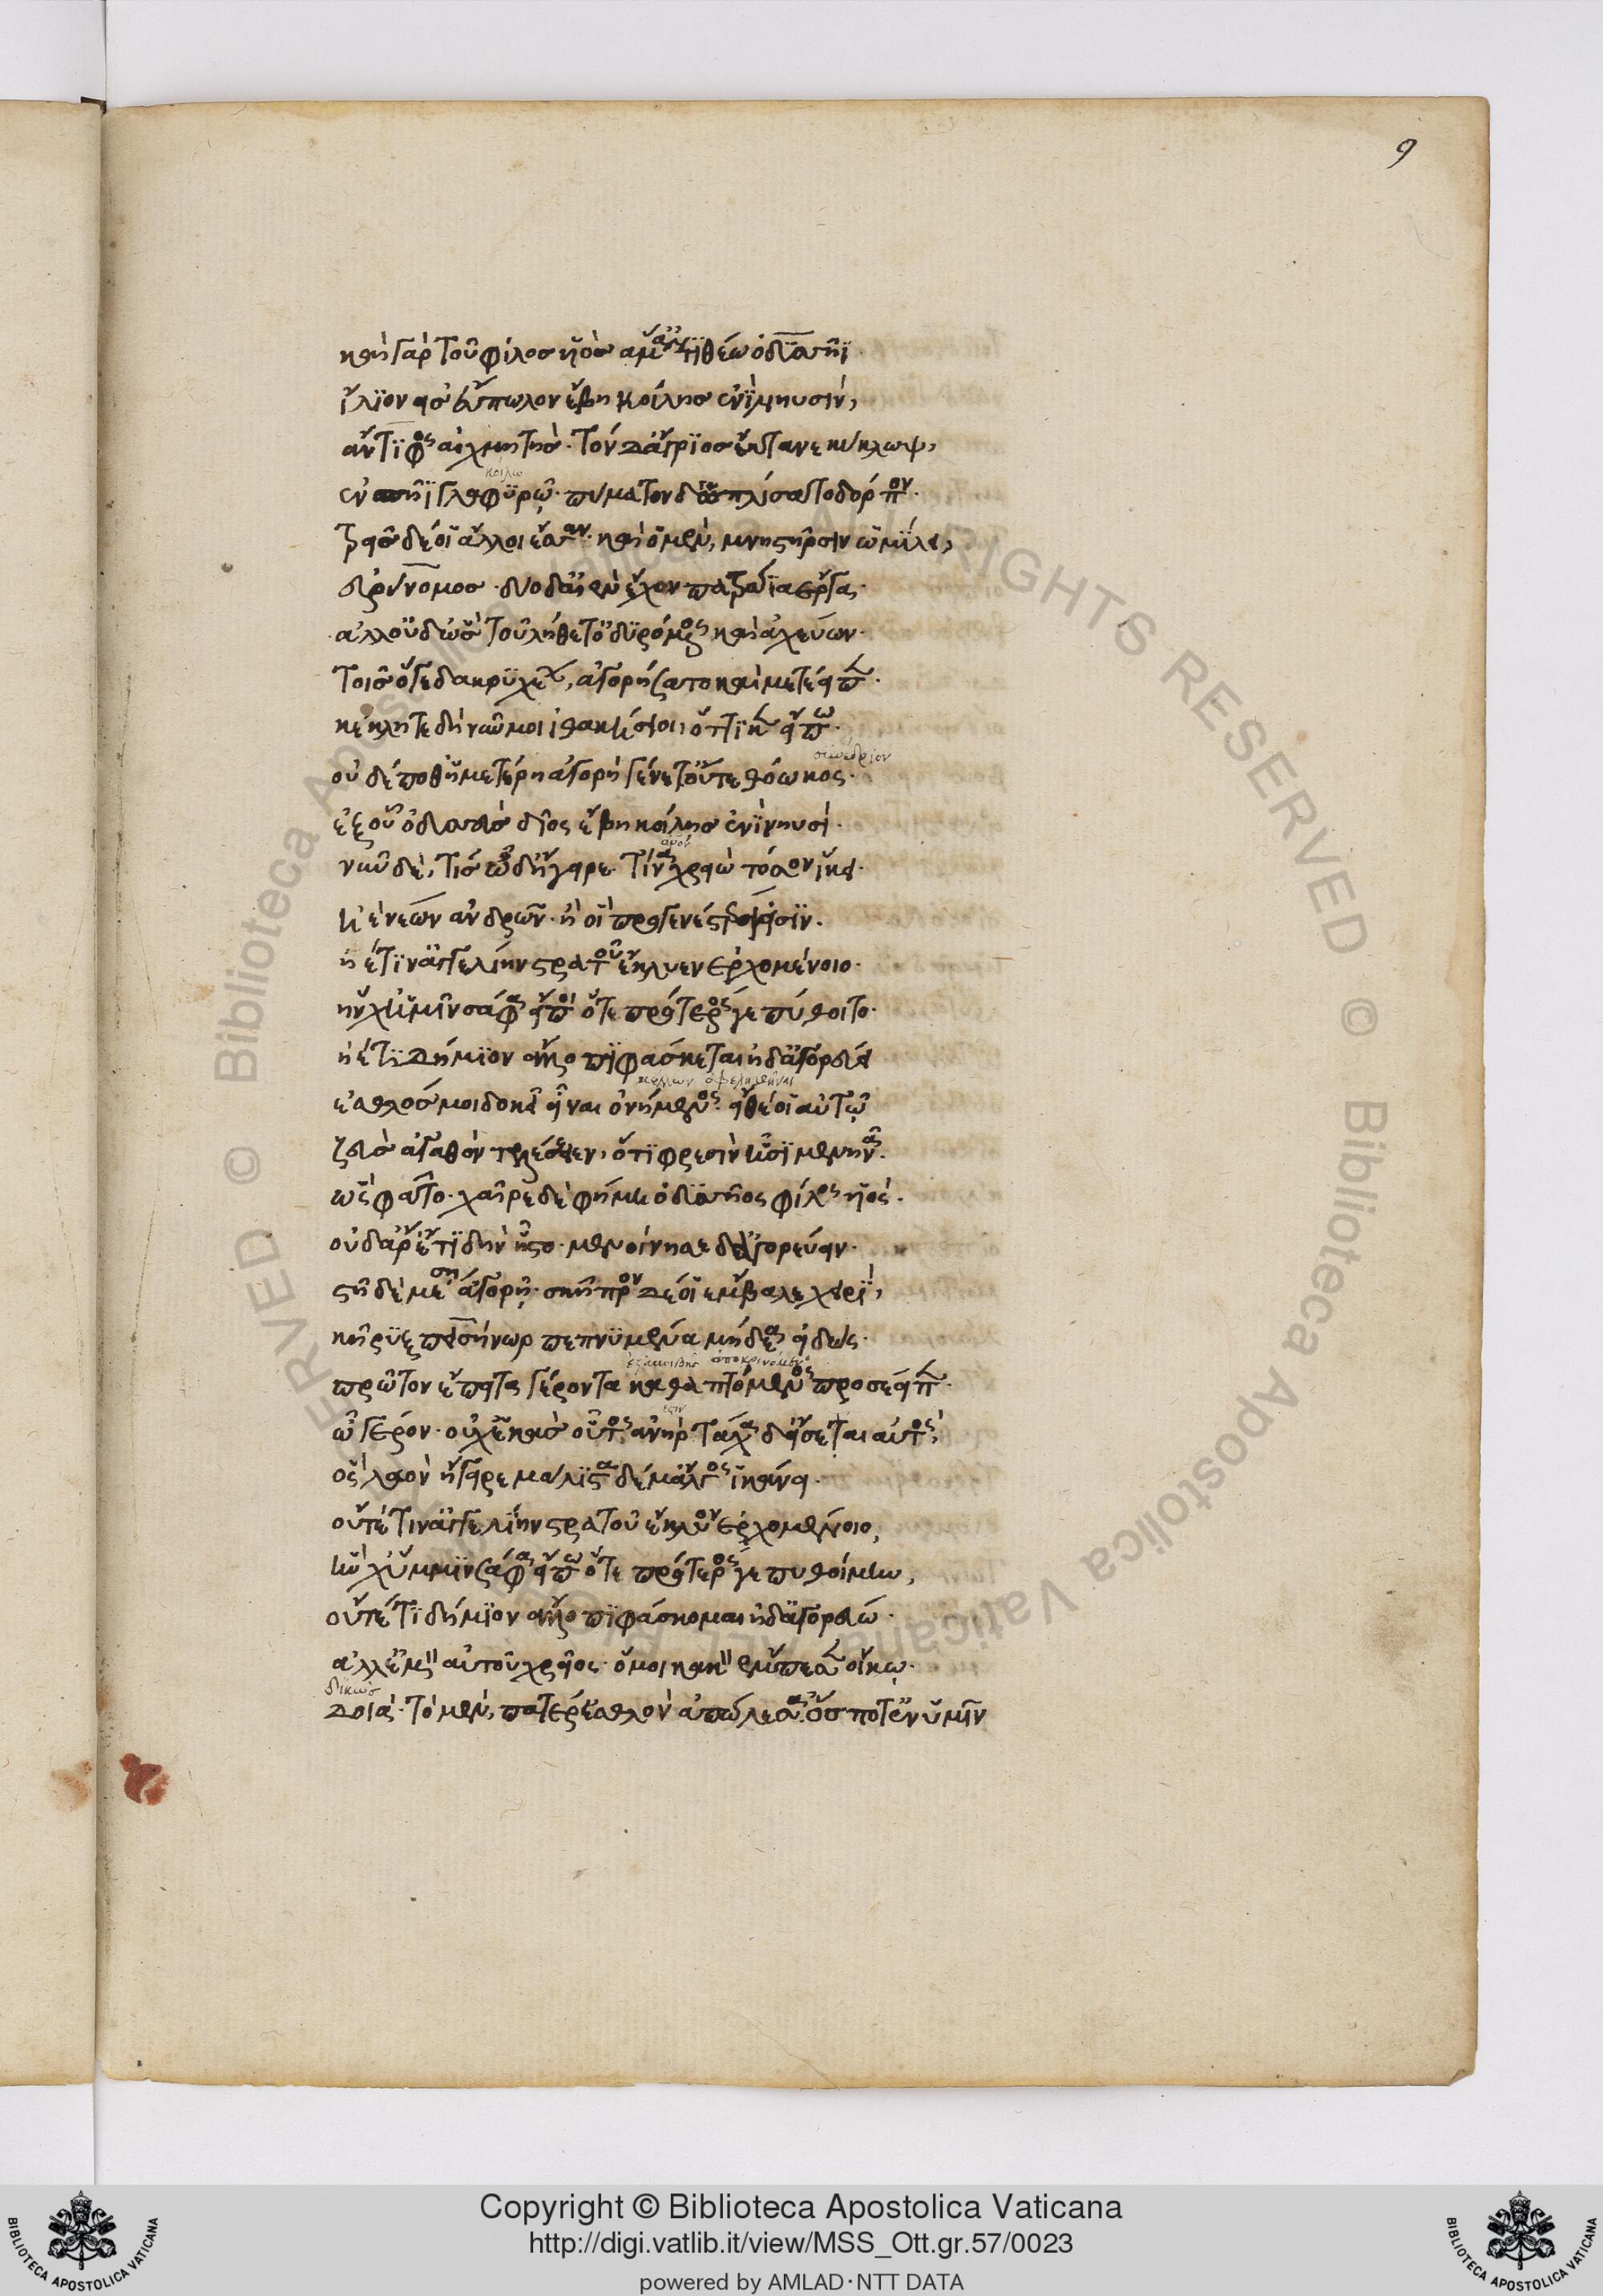 9
καὶ γὰρ τοῦ φίλος υἱὸς ἅμ' ἀντιθέω ὀδυσσῆϊ
ἴλϊον εἰσ εὔπωλον ἔβη κοίλησ ἐνὶ νηυσὶν,
ἄντιφος αἰχμητής· τὸν δ' ἄγριος ἔκτανε κύκλωψ,
κοίλω
ἐν σπῆϊ γλαφυρῷ· πύματον δ' ὡπλίσατο δόρπον·
τρεῖς δέ οἱ ἄλλοι ἔσαν· καὶ ὁ μὲν, μνηστῆρσιν ὡμίλει,
εὐρύνομος· δύο δ' αἰὲν ἔχον πατρώϊα ἔργα·
ἀλλ' οὐδ' ὣς τοῦ λήθετ' ὀδυρόμενος καὶ ἀχεύων·
τοῖς ὅγε δακρυχέων, ἀγορήσατο καὶ μετέειπεν·
κέκλυτε δὴ νῦν μοι ἰθακήσιοι, ὅττι κεν εἴπω·
συνέδριον
οὐδέ ποθ' ἡμετέρη ἀγορὴ γένετ' οὔτε θόωκος·
ἐξ οὗ ὀδυσσεὺς δῖος ἔβη κοίλησ ἐνὶ νηυσί·
νῦν δὲ, τίς ὧδ' ἤγειρε· τίνα χρειὼ τόσον ἵκει·
ἠὲ νέων ἀνδρῶν· ἢ οἳ προγενέστεροί εἰσϊν·
ἠέ τιν' ἀγγελίην στρατοῦ ἔκλυεν ἐρχομένοιο·
ἥν χ' ἡμῖν σάφα εἴποι ὅτε πρότερός γε πύθοιτο·
ἠέ τι δήμιον ἄλλο πιφαύσκεται ἠδ' ἀγορεύει
ὠφεληθῆναι
ἐσθλός μοι δοκεῖ εἶναι ὀνήμενος· εἴθε οἱ αὐτῷ
ζεὺς ἀγαθὸν τελέσειεν, ὅτι φρεσὶν ᾗσι μενοινᾷ·
ὣς φάτο· χαῖρε δὲ φήμη ὀδυσσῆος φίλος υἱός·
οὐδ' ἄρ' ἔτι δὴν ἧστο· μενοίνησε δ' ἀγορεύειν·
στῆ δὲ μέση ἀγορῇ· σκῆπτρον δέ οἱ ἔμβαλε χειρὶ,
κῆρυξ πεισήνωρ πεπνυμένα μήδεα εἰδώς·
ἀποκρινόμενος
πρῶτον ἔπειτα γέροντα καθαπτόμενος προσέειπεν·
ὦ γέρον· οὐχ ἑκὰς οὗτος ἀνὴρ· τάχα δ' εἴσεται αὐτὸς,
ὃς λαὸν ἤγειρε· μάλιστα δέ μ' ἄλγος ἱκάνει·
οὔτέ τιν' ἀγγελίην στρατοῦ ἔκλυον ἐρχομένοιο,
ἥν χ' ὕμμιν σάφα εἴπω ὅτε πρότερός γε πυθοίμην,
οὔτέ τι δήμιον ἄλλο πιφαύσκομαι ἠδ' ἀγορεύω·
ἀλλ' ἐμὸν αὐτοῦ χρεῖος· ὅ μοι κακὸν ἔμπεσεν οἴκῳ·
δικῶς
δοιά· τὸ μὲν, πατέρ' ἐσθλὸν ἀπώλεσα· ὅς ποτ' ἐν ὑμῖν
Copyright © Biblioteca Apostolica Vaticana
http://digi.vatlib.it/view/MSS_Ott.gr.57/0023
powered by AMLAD·NTT DATA